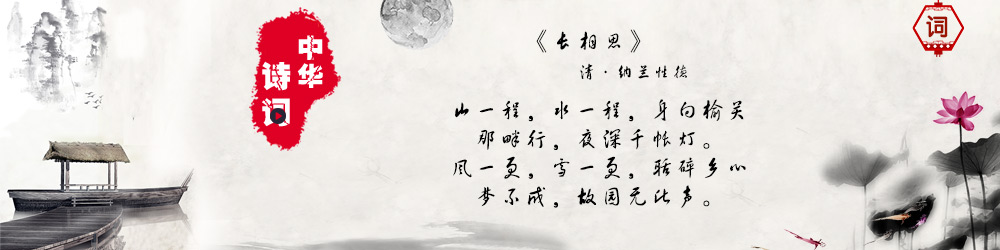 中华
诗词
《长相思》
清·纳兰性德
山一程，水一程，身向榆关
那畔行，夜深千帐灯。
风一更，雪一更，聒碎乡心
梦不成，故园无此声。
词